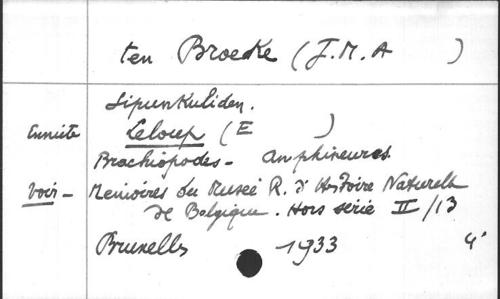 ten Broecke (J. M. A )
Sipunkuliden.
Ensuite Leloup (E )
Brachiopodes - Amphineures.
Voir - Memoires du Musée R. d'Histoire Naturelle
de Belgique. Hors série II/13
Bruxelles 1933 4°